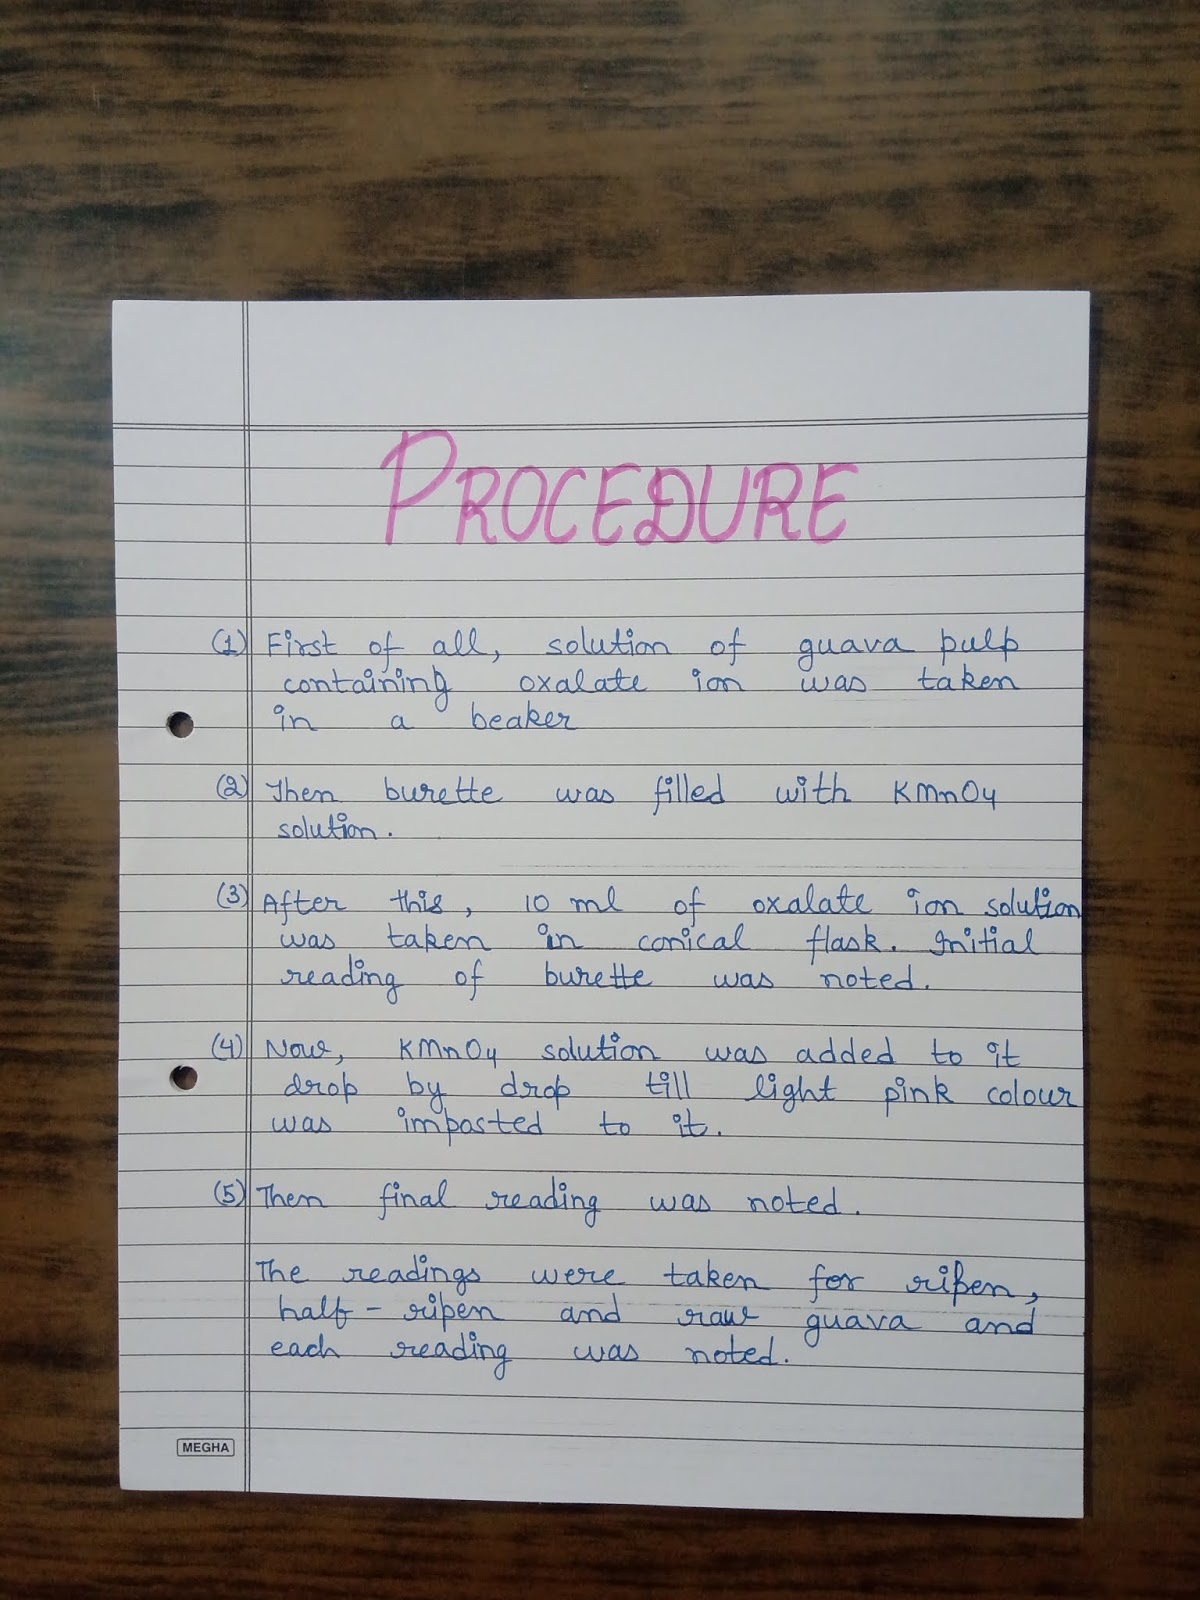 PROCEDURE
(1) First of all, solution of guava pulp
containing oxalate ion was taken
in a beaker
(2) Then burette was filled with KMnO4
solution.
(3) After this, 10 ml of oxalate ion solution
was taken in conical flask. Initial
reading of burette was noted.
(4) Now, KMnO4 solution was added to it
drop by drop till light pink colour
was imparted to it.
(5) Then final reading was noted.
The readings were taken for ripen,
half-ripen and raw guava and
each reading was noted.
MEGHA